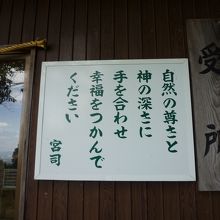 自然の尊さと
神の深さに
手を合わせ
幸福をつかんで
ください
宮司
受
所